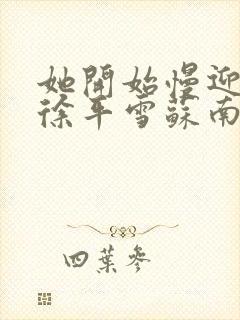 她開始慢迎
徐平雪蘇南
四葉參